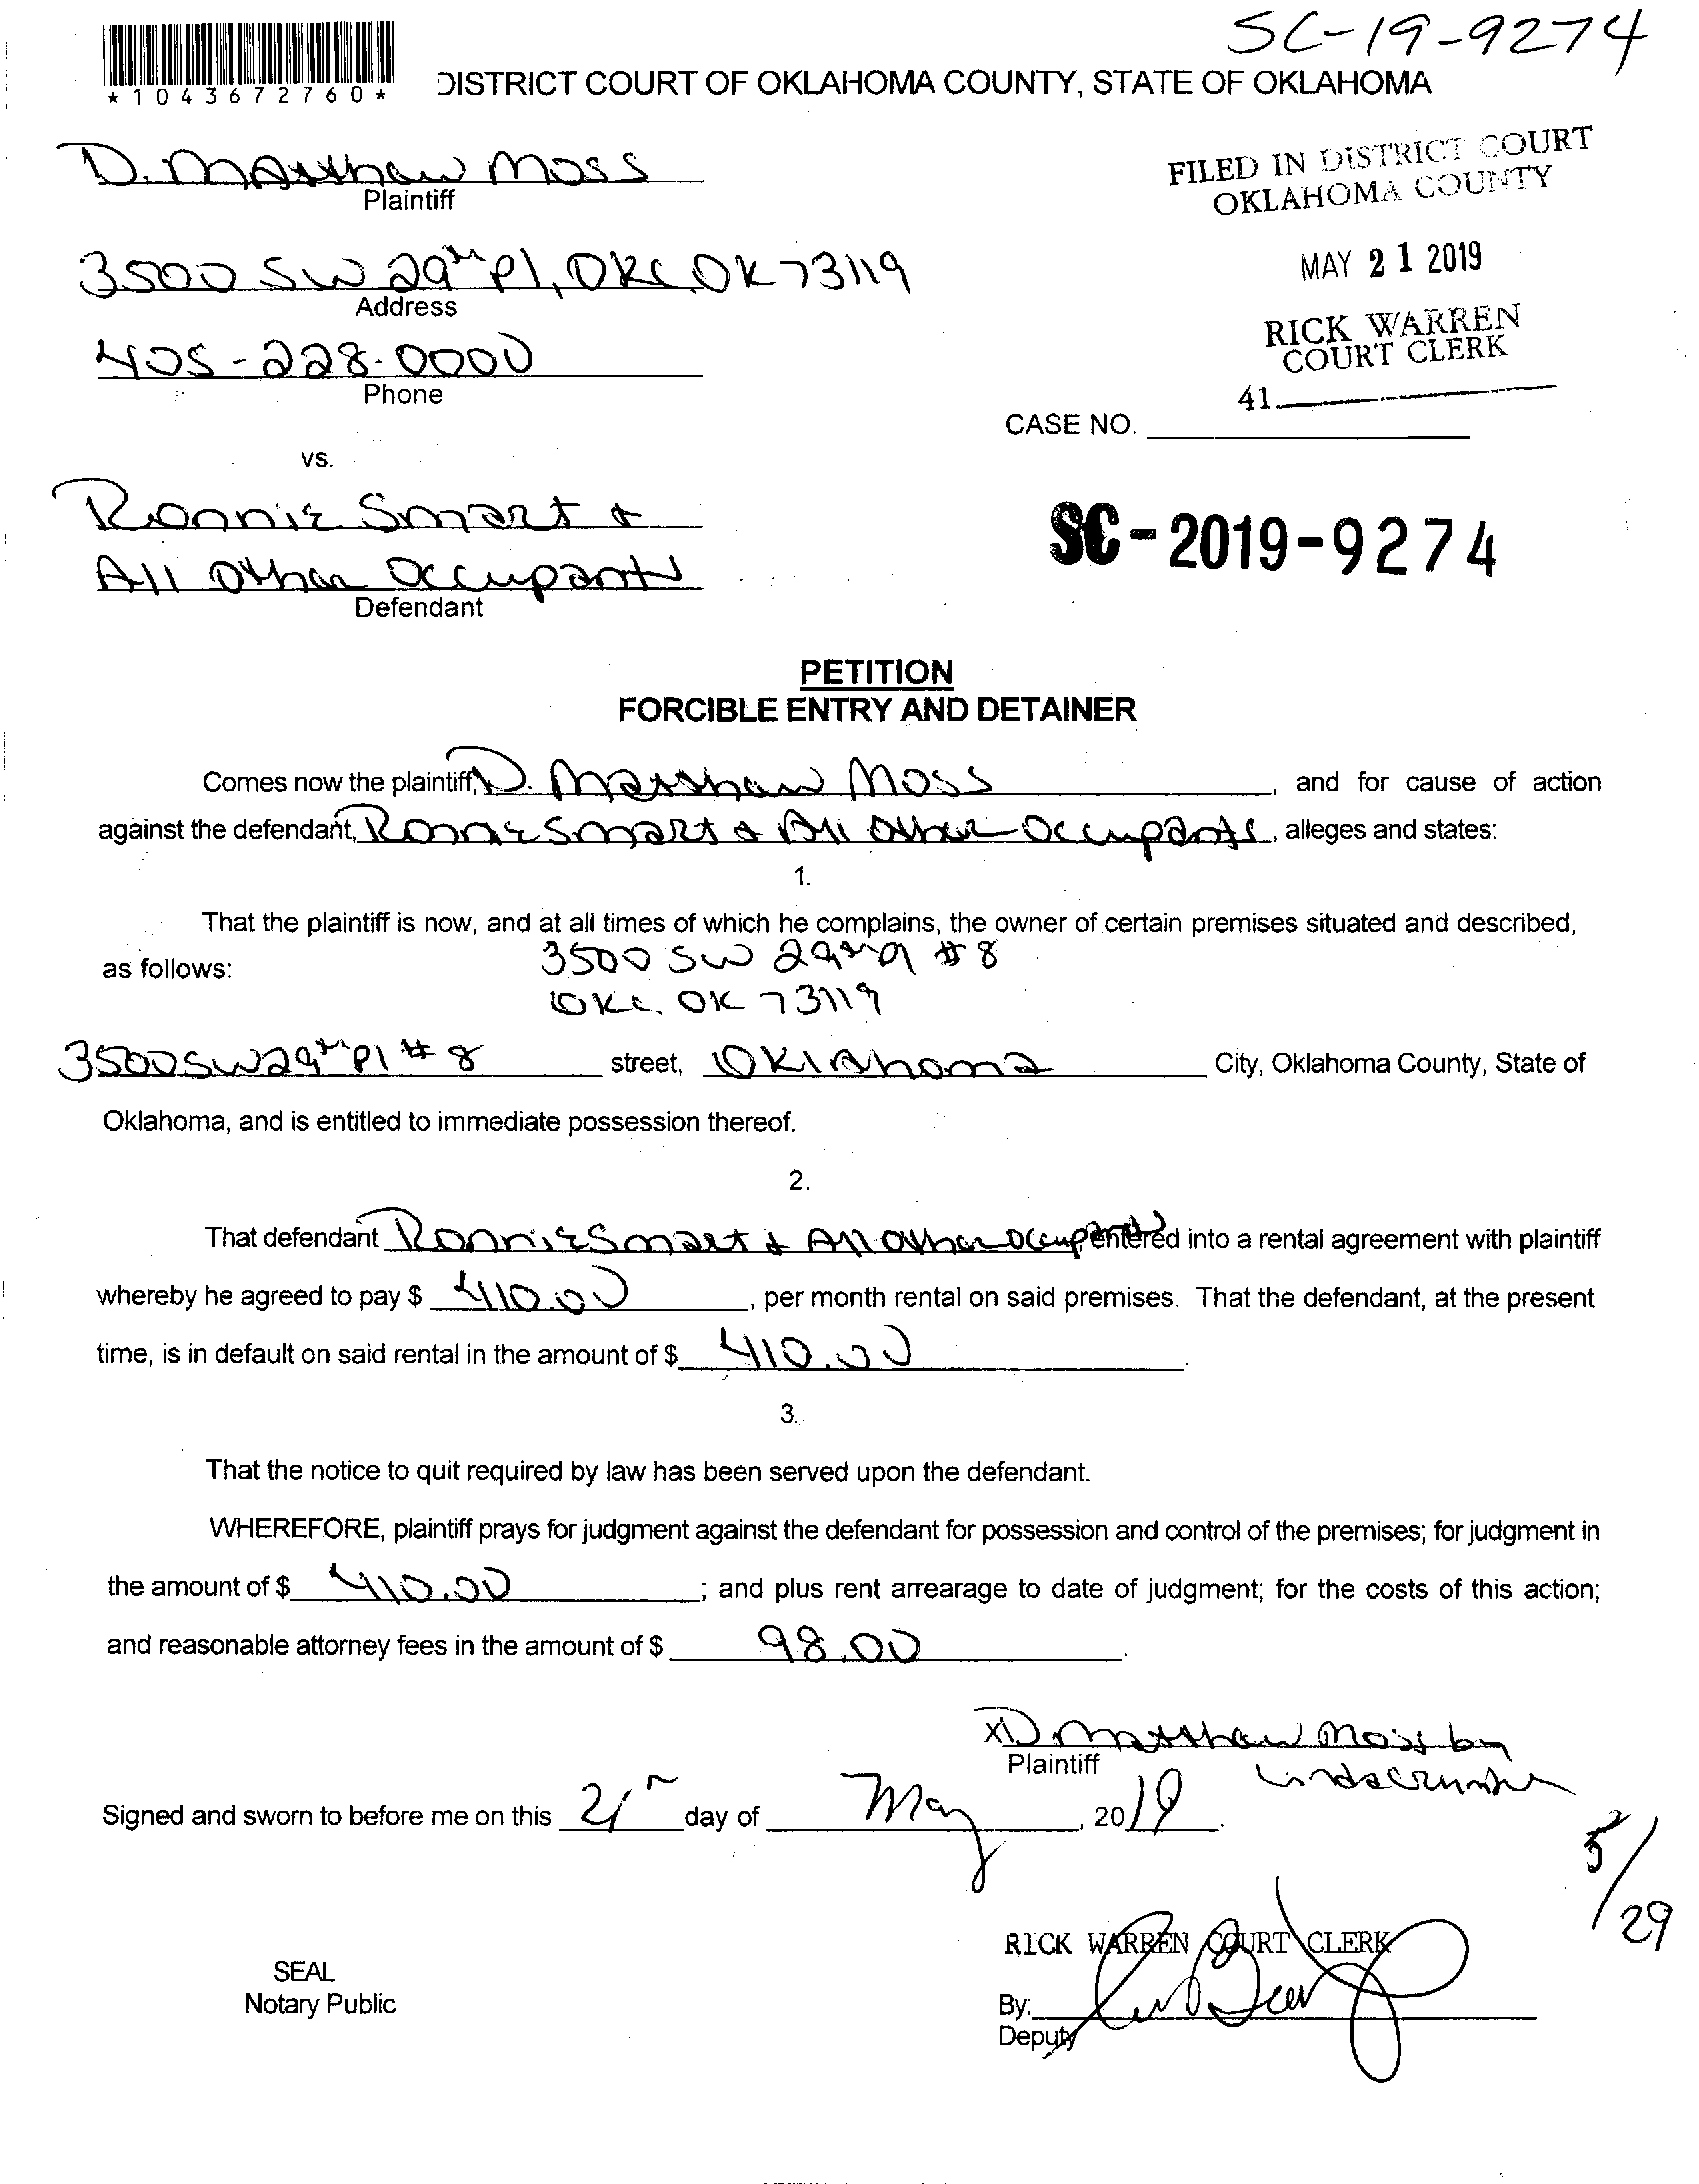 SC-19-9274
*1043672760*
DISTRICT COURT OF OKLAHOMA COUNTY, STATE OF OKLAHOMA
D. Matthew Moss
Plaintiff
FILED IN DISTRICT COURT
OKLAHOMA COUNTY
3500 SW 29th Pl, OKC OK 73119
Address
MAY 21 2019
RICK WARREN
COURT CLERK
405-228-0000
Phone
41
CASE NO.
vs.
Ronnie Smart &
All Other Occupants
Defendant
SC-2019-9274
PETITION
FORCIBLE ENTRY AND DETAINER
Comes now the plaintiff, D. Matthew Moss, and for cause of action
against the defendant, Ronnie Smart & All Other Occupants, alleges and states:
1.
That the plaintiff is now, and at all times of which he complains, the owner of certain premises situated and described,
as follows: 3500 SW 29th Pl #8
OKC. OK 73119
3500 SW 29th Pl #8 street, Oklahoma City, Oklahoma County, State of
Oklahoma, and is entitled to immediate possession thereof.
2.
That defendant Ronnie Smart & All Other Occupants entered into a rental agreement with plaintiff
whereby he agreed to pay $ 410.00, per month rental on said premises. That the defendant, at the present
time, is in default on said rental in the amount of $ 410.00.
3.
That the notice to quit required by law has been served upon the defendant.
WHEREFORE, plaintiff prays for judgment against the defendant for possession and control of the premises; for judgment in
the amount of $ 410.00; and plus rent arrearage to date of judgment; for the costs of this action;
and reasonable attorney fees in the amount of $ 98.00.
X D Matthew Moss by
Plaintiff
Signed and sworn to before me on this 21st day of May, 2019.
5/29
RICK WARREN COURT CLERK
SEAL
Notary Public
By:
Deputy